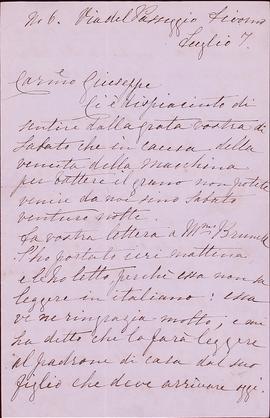 No 6. Via del Passeggio Livorno
Luglio 7.
Carmo Giuseppe
Ci è dispiaciuto di
sentire dalla grata vostra di
Sabato che in causa della
venuta della macchina
per battere il grano non potete
venire da noi sino Sabato
venturo notte.
La vostra lettera a Mme Brunell
l'ho portato ieri mattina
e le ho letto, perchè essa non sa
leggere in italiano: essa
ve ne ringrazia molto, e mi
ha detto che la farà leggere
al padrone di casa dal suo
figlio che deve arrivare oggi.